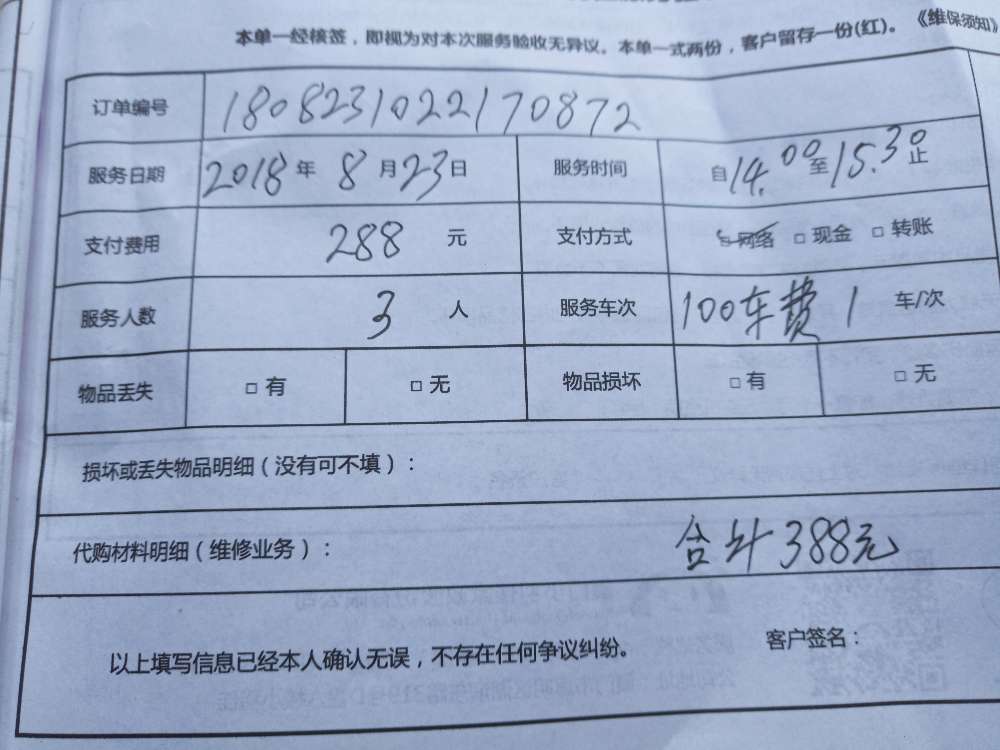 本单一经核签，即视为对本次服务验收无异议。本单一式两份，客户留存一份(红)。《维保须知》
订单编号 180823102217​0872
服务日期 2018年8月23日 服务时间 自14.00至15.30止
支付费用 288 元 支付方式 网络 □ 现金 □ 转账
服务人数 3 人 服务车次 100车费 1 车/次
物品丢失 □ 有 □ 无 物品损坏 □ 有 □ 无
损坏或丢失物品明细（没有可不填）：
代购材料明细（维修业务）： 合计388元
以上填写信息已经本人确认无误，不存在任何争议纠纷。 客户签名：